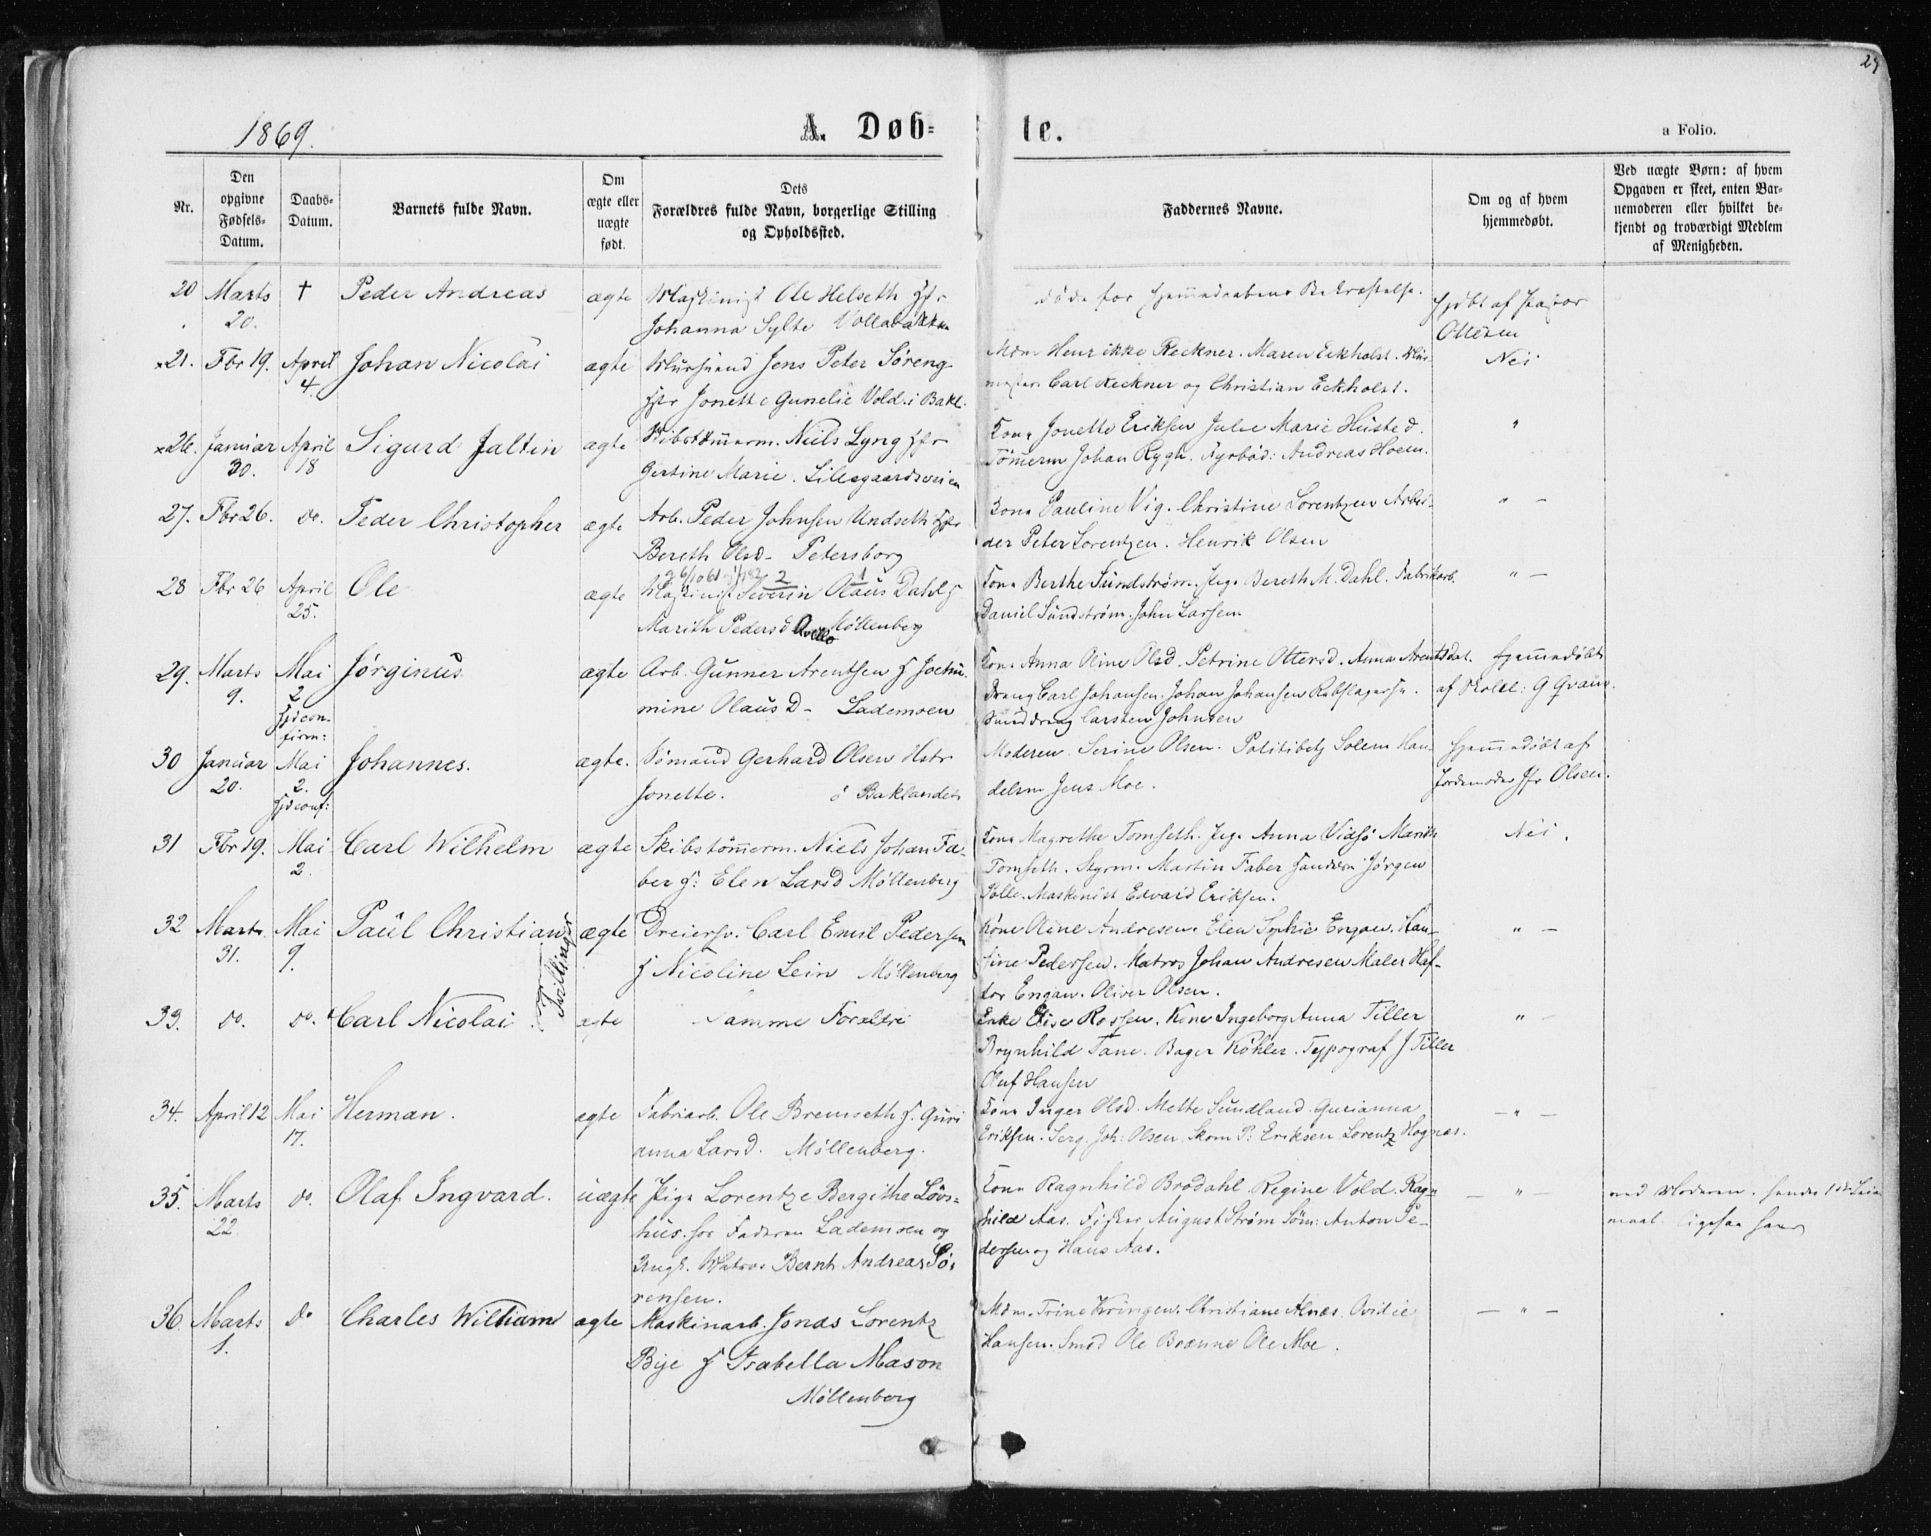 29
1869.
A. Døb-
te.
a Folio.
Nr.
Den opgivne Fødsels-Datum.
Daabs-Datum.
Barnets fulde Navn.
Om ægte eller uægte født.
Dets Forældres fulde Navn, borgerlige Stilling og Opholdssted.
Faddernes Navne.
Om og af hvem hjemmedøbt.
Ved uægte Børn: af hvem Opgaven er skeet, enten Barnemoderen eller hvilket bekjendt og troværdigt Medlem af Menigheden.
20 Marts † Peder Andreas ægte Maskinist Ole Helseth Hstr døde før Hjemmedaabens Bekræftelse. Hjdbt af Pastor
20. Johanna Sylte Vollabakken Ottesen
×21. Fbr 19. April Johan Nicolai ægte Muursvend Jens Peter Søreng Mdm Henrikke Reckner. Maren Eckholst. Muur- Nei
4. Hstr Jonette Gunelie Vold i Bakl. mester Carl Reckner og Christian Eckholst.
×26. Januar April Sigurd Faltin ægte Skibstømerm. Niels Lyng Hstr Kone Jonette Eriksen Julie Marie Husted. "
30. 18 Gertine Marie. Lillegaardsveien Tømerm Johan Rygh. Fyrbød: Andreas Hoem.
27. Fbr 26. do. Peder Christopher ægte Arb. Peder Johnsen Undseth Hstr Kone Pauline Vig. Christine Lorentzen Arbei- " —
Bereth Olsd. Petersborg der Peter Lorentzen. Henrik Olsen
28 Fbr 26 April Ole ægte Maskinist Severin Olaus Dahl H Kone Berthe Sundstrøm. Pige Bereth M. Dahl. Fabrikarb. " —
25. Marith Pedersd Møllenberg Daniel Sundstrøm. John Larsen
29. Marts Mai Jørginus ægte Arb. Gunner Arentsen H Jochu- Kone Anna Oline Olsd. Petrine Ottersd. Anna Arentsdat. Hjemmedøbt
9. 2 mine Olausd. Lademoen Dreng Carl Johansen. Johan Johansen Rebslagersv. af Skolel: G Qvam.
Hjdconfirm: Carsten Johnsen
30 Januar Mai Johannes. ægte. Sømand Gerhard Olsen Hstr Moderen. Serine Olsen. Politibetj Solem Han- Hjemmedøbt af
20. 2. Jonette. Baklandet delsm Jens Moe. Jordemoder Jfr Olsen.
Hjdconf:
31 Fbr 19. Mai Carl Wilhelm ægte Skibstømerm. Niels Johan Fa- Kone Magrethe Tomseth. Pige Anna Vidsø Marith Nei.
2. ber H: Elen Larsd Møllenberg Tomseth. Styrm. Martin Faber Jørgen
Maskinist Edvard Eriksen.
32 Marts Mai Paul Christian ægte Dreiersv. Carl Emil Pedersen Kone Oline Andresen. Elen Sophie Engan. Han- " —
31. 9. Tvillinger H Nicoline Lein Møllenberg sine Pedersen. Matros Johan Andresen Maler Haf-
tor Engan. Oliver Olsen.
33. do. do. Carl Nicolai ægte Samme Forældre Enke Elise Rossen. Kone Ingeborg Anna Tiller " —
Brynhild Tane. Bager Köhler. Typograf J Tiller
Oluf Hansen
34. April 12 Mai Herman. ægte Fabriarb. Ole Bremseth H. Guri- Kone Inger Olsd. Mette Sundland. Gurianna — " —
17. anna Larsd. Møllenberg. Eriksen. Serg. Joh: Olsen. Skom P: Eriksen Lorentz Hognes.
35. Marts do. Olaf Ingvard. uægte Pige Lorentze Bergithe Løvs- Kone Ragnhild Brødahl. Regine Vold. Rag- — " — ved Moderen. hendes 1ste Leier-
22. hus. hos Faderen Lademoen og hild Aas. Fisker August Strøm Søm: Anton Pe- maal. ligesaa hans
Ungk. Matros Bernt Andreas Sø- dersen og Hans Aas.
rensen.
36 Marts do Charles William ægte Maskinarb. Jonas Lorentz Mdm. Trine Kringen. Christiane Alnæs. Ovidie — " —
1. Bye H Isabella Mason Hansen. Smed Ole Brænne Ole Moe.
Møllenberg